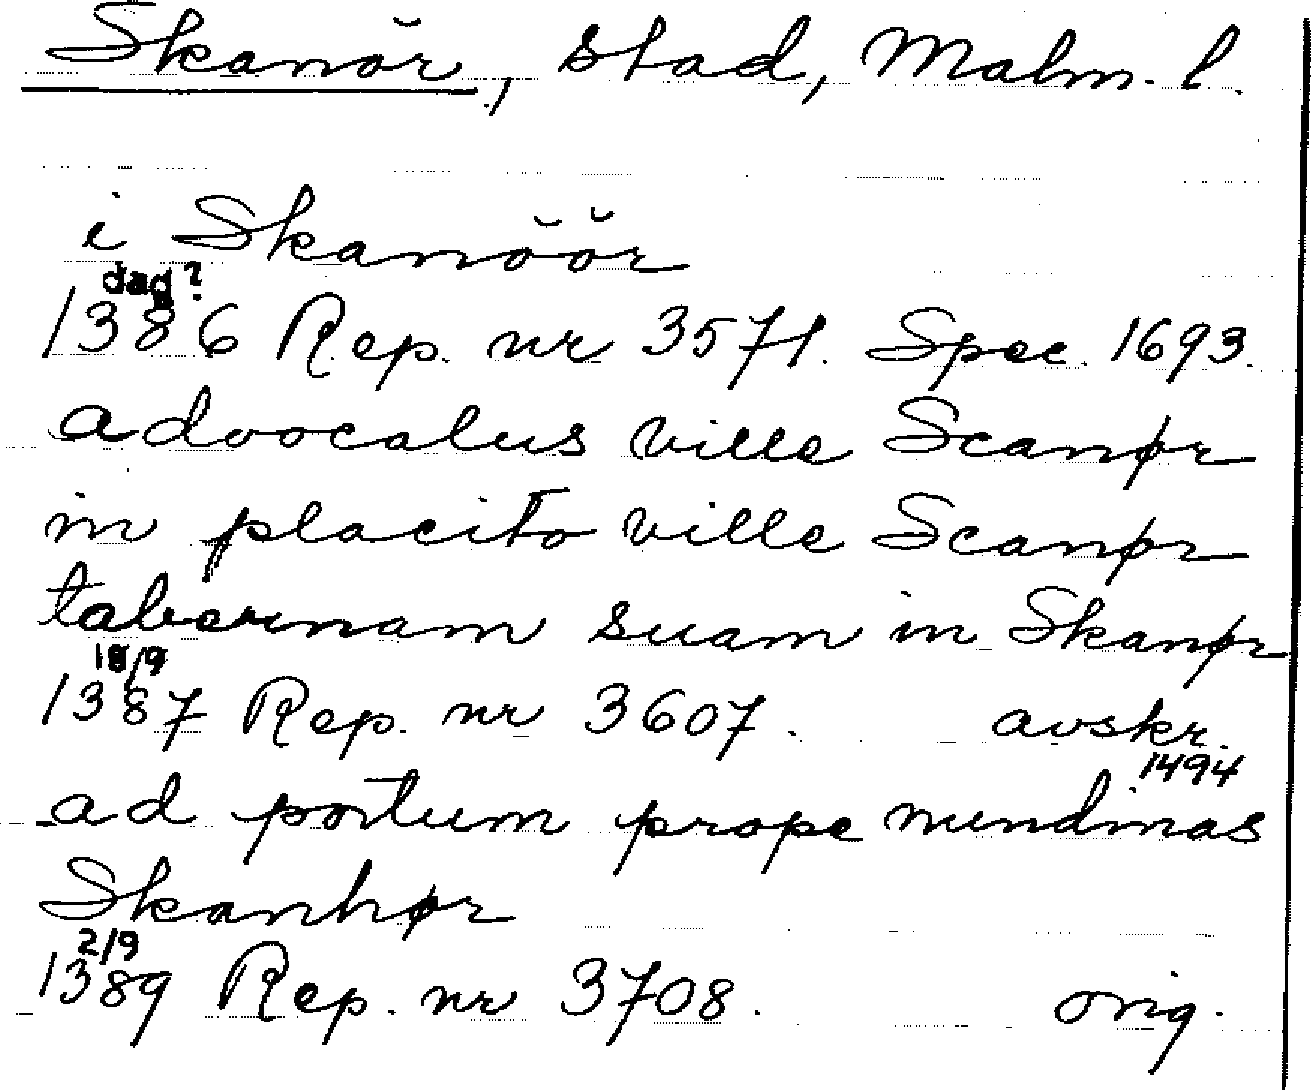 Skanör, stad, Malm. l.
i Skanöör
dag?
1386 Rep. nr 3571. Spec. 1693.
advocatus ville Scanør
in placito ville Scanør
tabernam suam in Skanør
18/9
1387 Rep. nr 3607. avskr.
1494
ad portum prope nundinas
Skanhør
2/9
1389 Rep. nr 3708. orig.